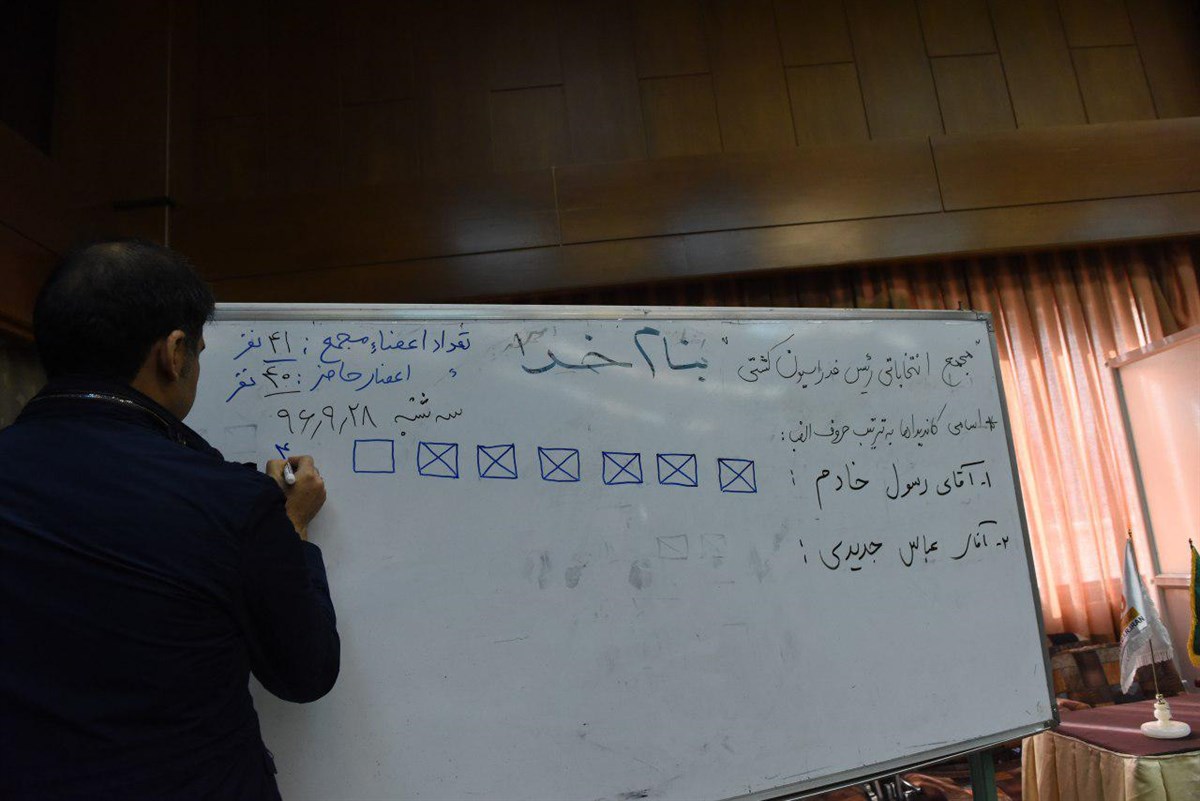 بنام خدا
"مجمع انتخاباتی رئیس فدراسیون کشتی"
تعداد اعضاء مجمع : ۴۱ نفر
ء اعضاء حاضر : ۴۰ نفر
سه شنبه ۹۶٫۹٫۲۸
* اسامی کاندیداها به ترتیب حروف الف :
۱- آقای رسول خادم :
۴
۲- آقای عباس جدیدی :
IRAN